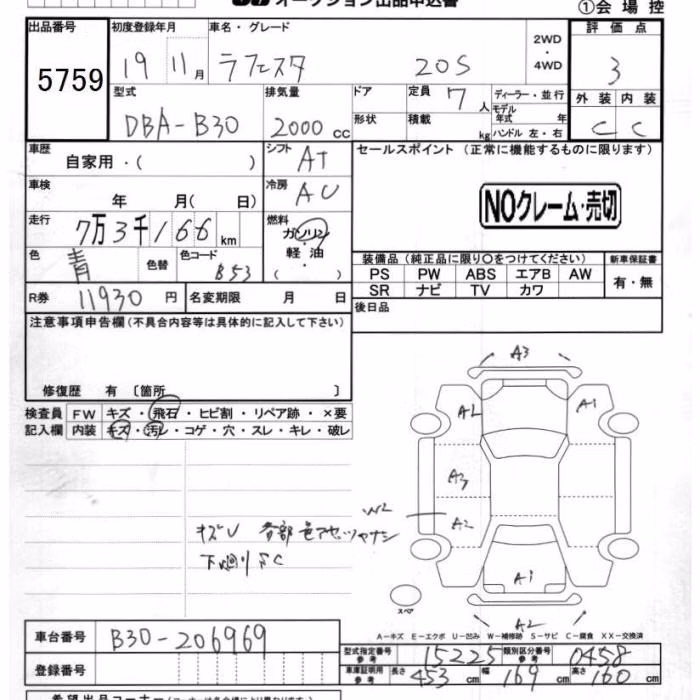 オークション出品申込書
①会場控
出品番号 初度登録年月 車名・グレード 評価点
5759 19 11月 ラフェスタ 20S 2WD・4WD 3
型式 排気量 ドア 定員 7人 ディーラー・並行 外装 内装
DBA-B30 2000cc 形状 積載 kg モデル年式 年 ハンドル 左・右 C C
車歴 自家用・( ) シフト AT セールスポイント (正常に機能するものに限ります)
車検 年 月( 日) 冷房
NOクレーム・売切
走行 7万3千166km 燃料 ガソリン・軽油 ( )
色 青 色替 色コード B53
装備品(純正品に限り○をつけてください) 新車保証書
PS PW ABS エアB AW 有・無
SR ナビ TV カワ
R券 11930円 名変期限 月 日
後日品
注意事項申告欄(不具合内容等は具体的に記入して下さい)
修復歴 有 〔箇所 〕
検査員 FW キズ・飛石・ヒビ割・リペア跡・×要
記入欄 内装 キズ・汚レ・コゲ・穴・スレ・キレ・破レ
A3
A2 A1
A3
W2
A2
A1
A2
キズU
下廻り SC
スペア
A-キズ E-エクボ U-凹み W-補修跡 S-サビ C-腐食 XX-交換済
車台番号 B30-206969
型式指定番号 参考 15225 類別区分番号 参考 0458
登録番号
車庫証明用 参考 長さ 453cm 幅 169cm 高さ 160cm
希望出品コーナー